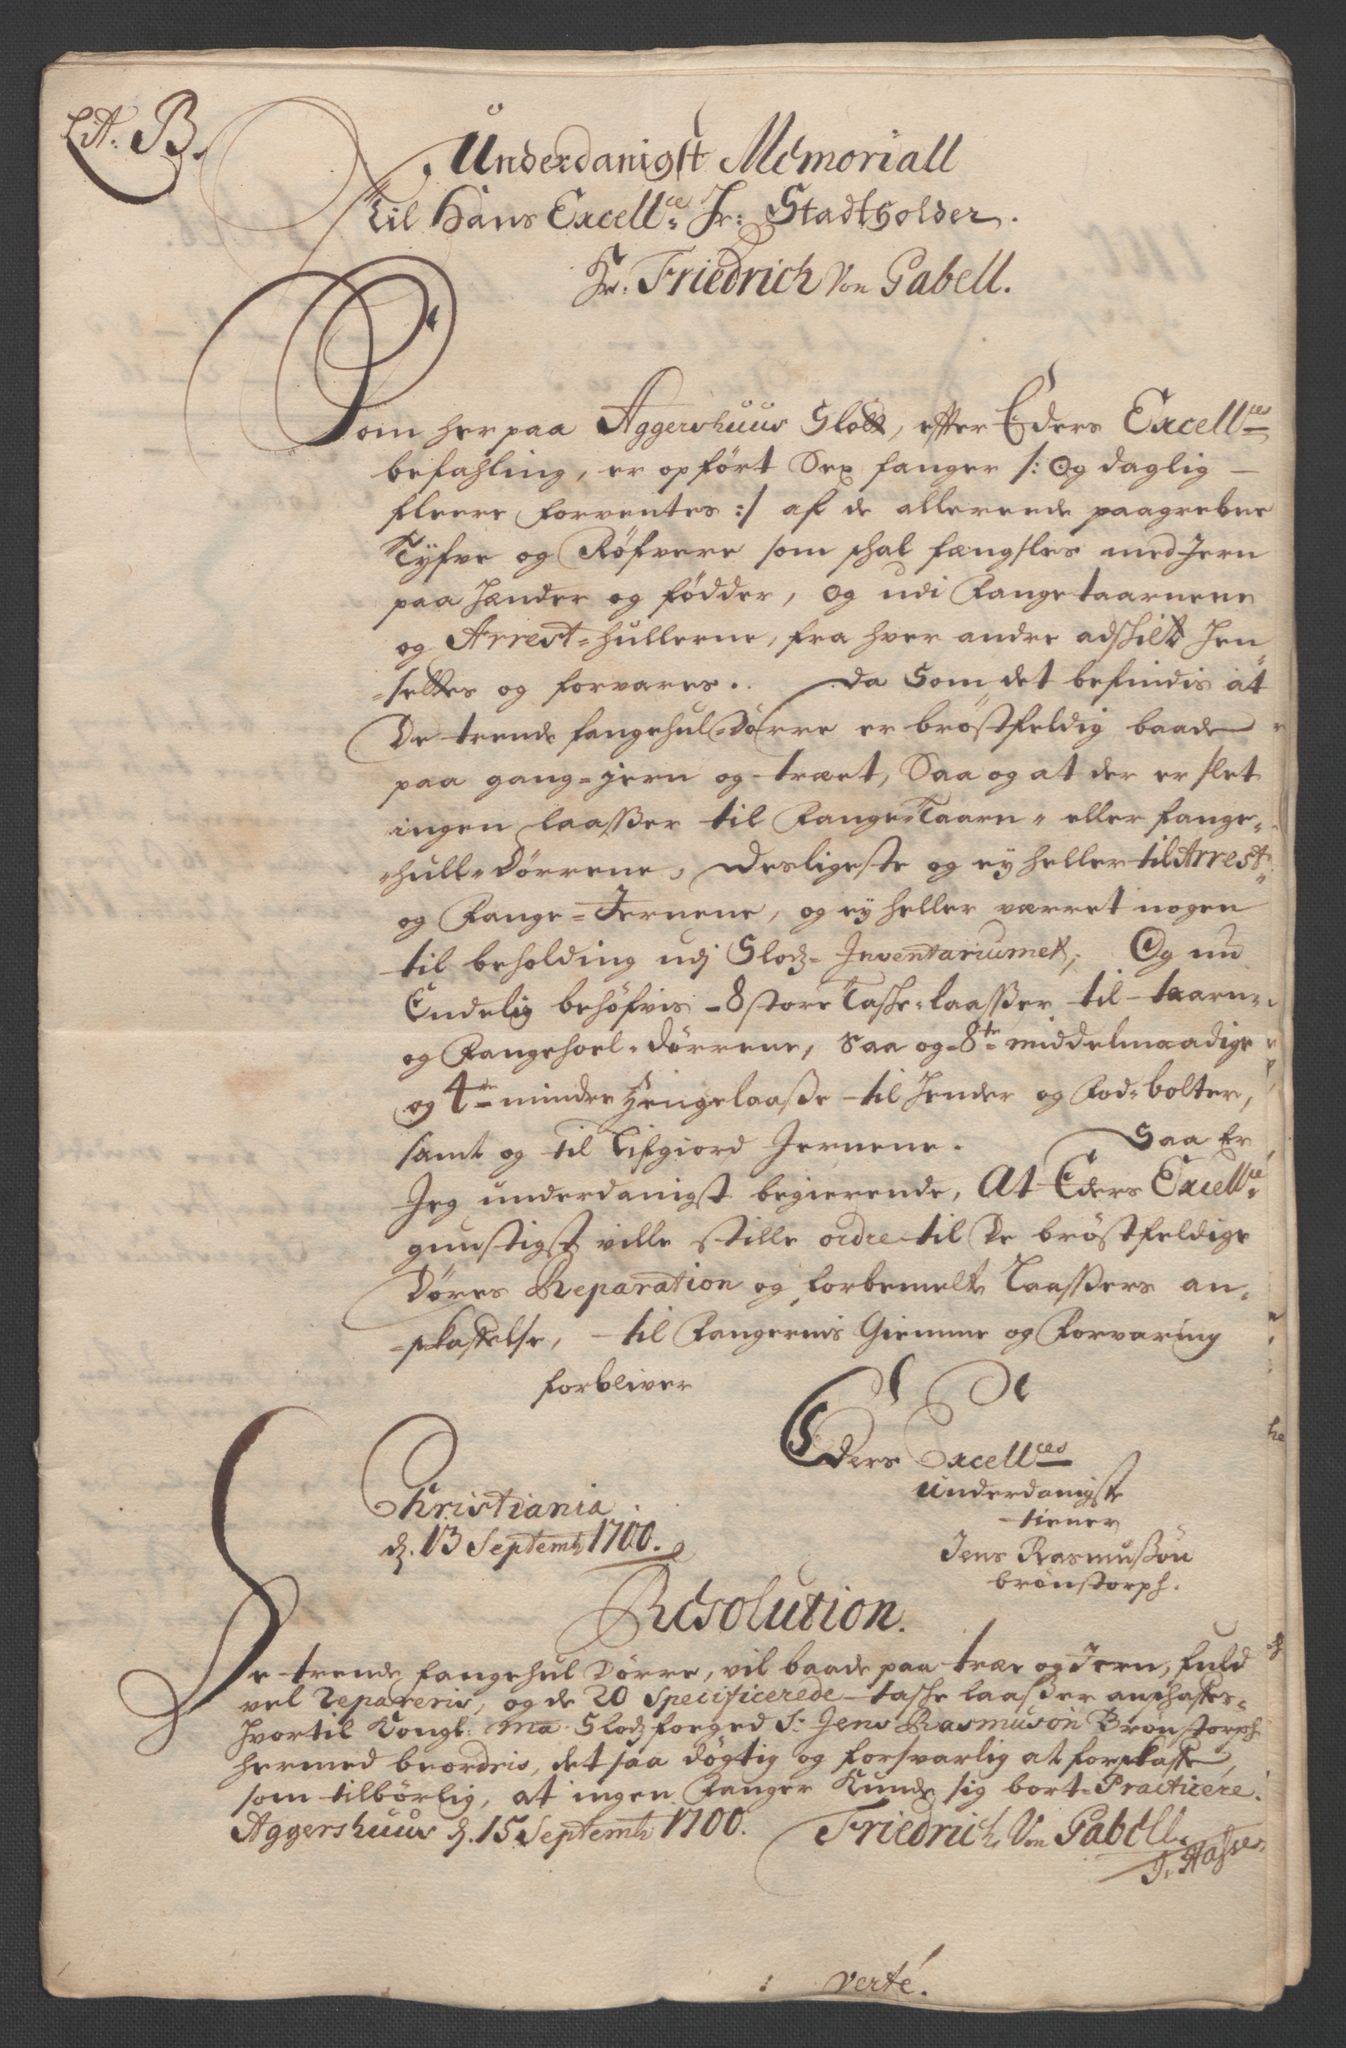 Lit: B.
Underdanigst Memoriall
til Hans Excell:ce Hr: Stadtholder.
Hr: Friedrich Von Gabell.
Som her paa Aggershuus Slott, efter Eders Excell:ces
befahling, er opført Sex fanger /: Og daglig
fleere forventes :/ af de allerende paagrebne
Tyfve og Røfvere som schal fængsles med Jern
paa Hænder og fødder, og udi Fangetaarnene
og Arrest-hullerne, fra hver andre adschilt Hen-
-settes og forvares. Da Som det befindis at
De trende fangehul-Dørre er brøstfeldig baade
paa gang-jern og træet, Saa og at der er slet
ingen laasser til Fange-Taarn- eller fange-
-hull-Dørrene, Desligeste og ey heller til Arrest-
og Fange-Jernene, og ey heller værret nogen
til beholding udj Slodz-Inventariumet, Og nu
Endelig behøfvis 8 store Tasche-laasser til taarn-
og Fangehoel-dørrene, Saa og 8te middelmaadige
og 4re mindre Hengelaasse til Hender og Fod-bolter,
samt og til Lifgiord Jernene. Saa Er
Jeg underdanigst begierende, At Eders Excell:ce
gunstigst ville stille ordre til De brøstfeldige
Døres Reparation og forbemelte Laassers an-
-skaffelse, til Fangernis Giemme og Forvaring
forbliver
Eders Excell:ces
underdanigste
tiener
Jens Rasmussøn
brønstorph.
Christiania
d. 13 Septemb: 1700.
Resolution.
De trende fangehul Dørre, vil baade paa træe og Jern, fuld
vel Repareris, og de 20 Specificerede tasche laasser anschaffes-
Hvortil Kongl: Ma: Slodzfoged Sr: Jens Rasmuson Brønstorph
hermed beordris, det saa døgtig og forsvarlig at forskaffe,
som tilbørlig, at ingen Fanger Kunde sig bort-Practicere.
Aggershuus d. 15 Septemb: 1700. Friedrich Von Gabell.
verté.